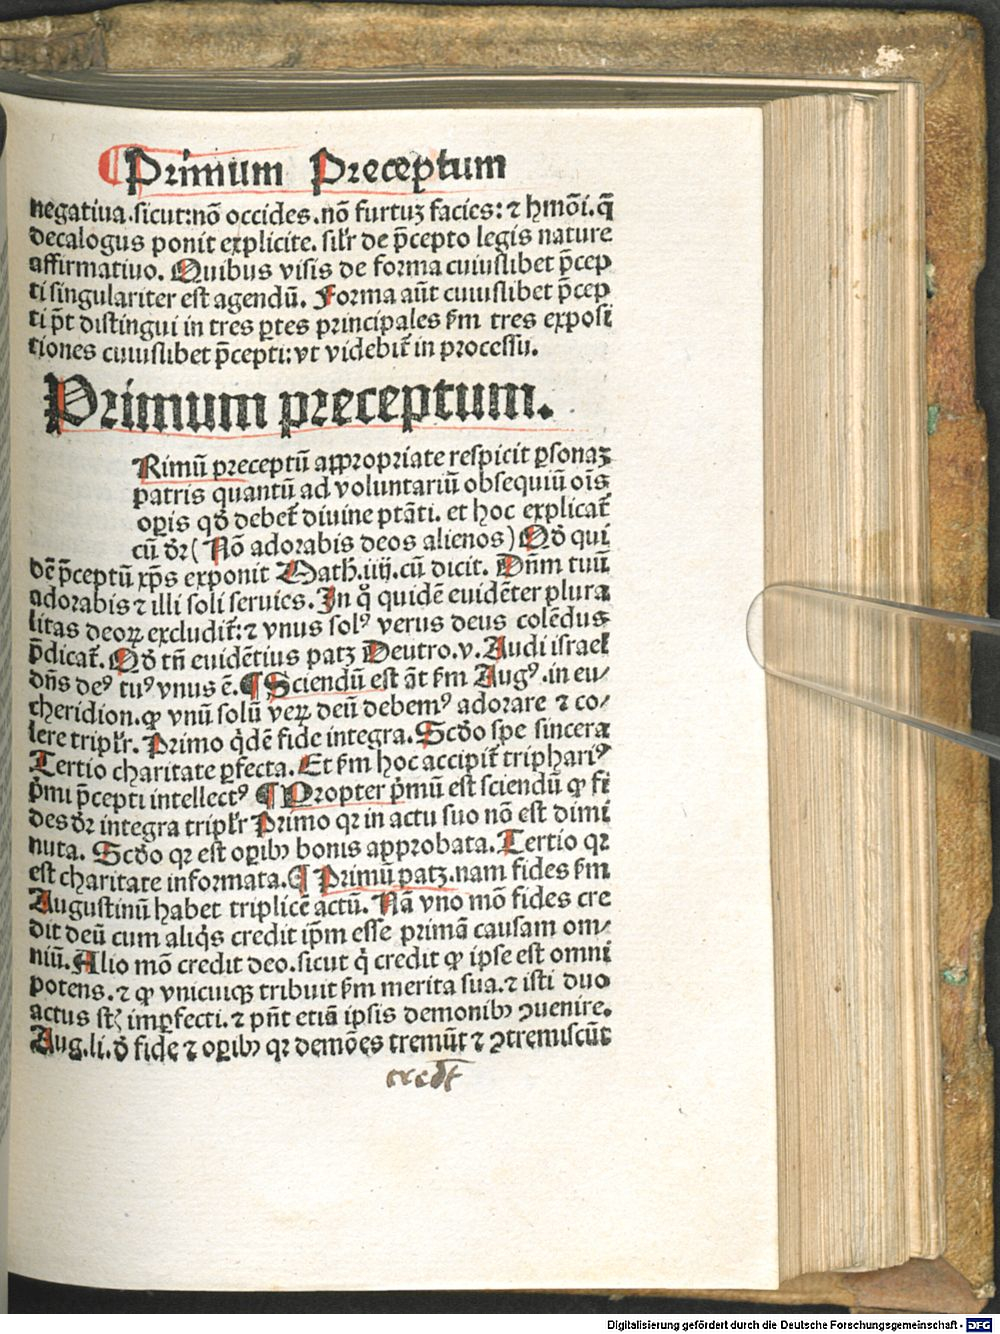 ¶ Primum Preceptum
negatiua.sicut:nõ occides.nõ furtuꝫ facies:⁊ hmõi.q̃
decalogus ponit explicite. sil'r de p̃cepto legis nature
affirmatiuo. Quibus visis de forma cuiuslibet p̃cep
ti singulariter est agendũ. Forma aũt cuiuslibet p̃cep
ti pñt distingui in tres ꝑtes principales ẜm tres exposi
tiones cuiuslibet p̃cepti: vt videbit᷑ in processu.
Primum preceptum.
Rimũ preceptũ appropriate respicit ꝑsonaꝫ
patris quantũ ad voluntariũ obsequiũ oĩs
oꝑis qď debet᷑ diuine ptãti. et hoc explicat᷑
cũ dr̃ ( Nõ adorabis deos alienos ) Qď qui
dẽ p̃ceptũ xp̃s exponit Math.iiij.cũ dicit. Dñm tuũ
adorabis ⁊ illi soli seruies. In q̊ quidẽ euidẽter plura
litas deoꝝ excludit᷑: ⁊ vnus solꝰ verus deus colẽdus
p̃dicat᷑. Qď tñ euidẽtius patꝫ Deutro.v. Audi israel
dñs deꝰ tuꝰ vnus ẽ. ¶ Sciendũ est ãt ẜm Augꝰ.in eu/
cheridion. ꝙ vnũ solũ veꝝ deũ debemꝰ adorare ⁊ co/
lere tripl'r. Primo q̊dẽ fide integra. Scďo spe sincera
Tertio charitate ꝑfecta. Et ẜm hoc accipit᷑ triphariꝰ
p̊mi p̃cepti intellectꝰ ¶ Propter p̊mũ est sciendũ ꝙ fi
des dr̃ integra tripl'r Primo qꝛ in actu suo nõ est dimi
nuta. Scďo qꝛ est oꝑibꝫ bonis approbata. Tertio qꝛ
est charitate informata. ¶ Primũ patꝫ. nam fides ẜm
Augustinũ habet triplicẽ actũ. Nã vno mõ fides cre
dit deũ cum aliq̊s credit ip̃m esse primã causam om/
niũ. Alio mõ credit deo. sicut q̊ credit ꝙ ipse est omni
potens. ⁊ ꝙ vnicuiqꝫ tribuit ẜm merita sua. ⁊ isti duo
actus st̃ imperfecti. ⁊ pñt etiã ipsis demonibꝫ ꝯuenire.
Aug.li.ď fide ⁊ oꝑibꝫ qꝛ demões tremũt ⁊ ꝯtremiscũt
Digitalisierung gefördert durch die Deutsche Forschungsgemeinschaft - DFG